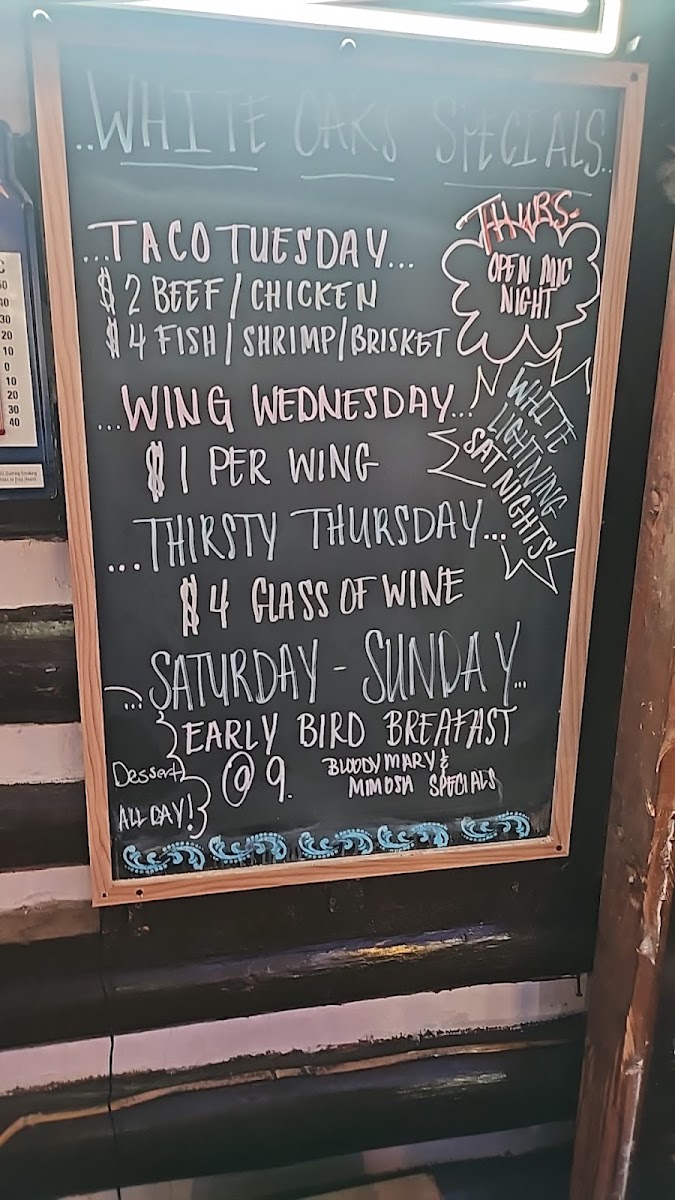 ..WHITE OAKS SPECIALS..
...TACO TUESDAY...
$2 BEEF/CHICKEN
$4 FISH/SHRIMP/BRISKET
THURS-
OPEN MIC
NIGHT
...WING WEDNESDAY...
$1 PER WING
WHITE
LIGHTNING
SAT NIGHTS
...THIRSTY THURSDAY...
$4 GLASS OF WINE
...SATURDAY - SUNDAY...
EARLY BIRD BREAFAST
@ 9.
BLOODY MARY &
MIMOSA SPECIALS
Dessert
ALL DAY!
C
50
40
30
20
10
0
10
20
30
40